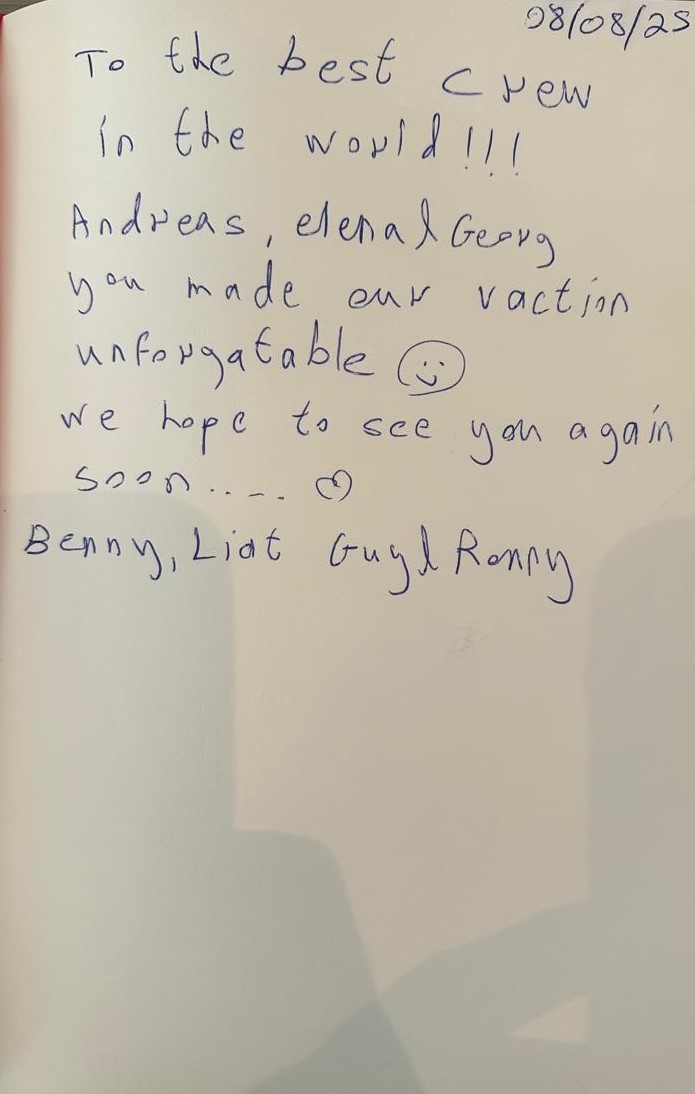 08/08/25
To the best crew
in the world!!!
Andreas, elena & Georg
you made our vaction
unforgatable ☺
we hope to see you again
soon..... ♡
Benny, Liat Guy & Ronny